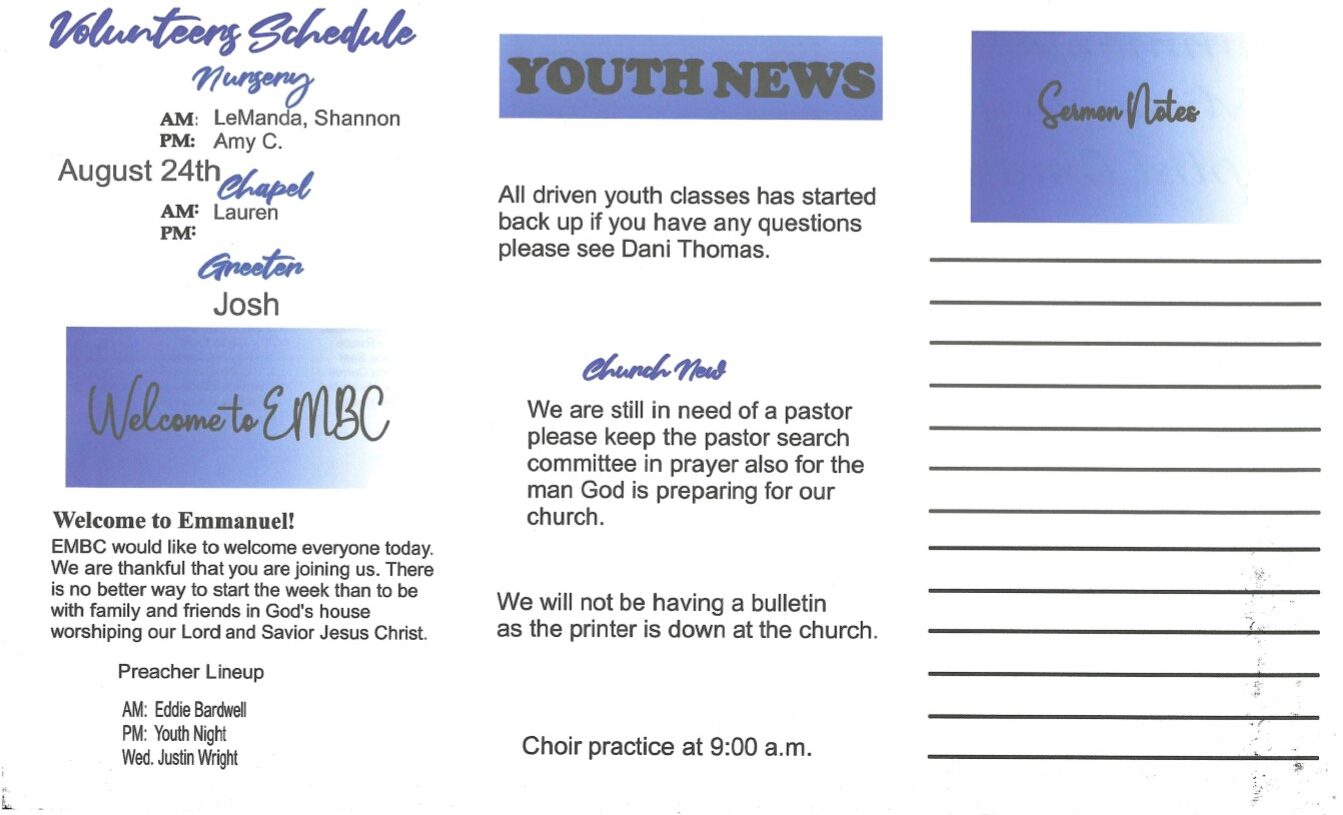 Volunteers Schedule
Nursery
AM: LeManda, Shannon
PM: Amy C.
August 24th
Chapel
AM: Lauren
PM:
Greeter
Josh
Welcome to EMBC
Welcome to Emmanuel!
EMBC would like to welcome everyone today.
We are thankful that you are joining us. There
is no better way to start the week than to be
with family and friends in God's house
worshiping our Lord and Savior Jesus Christ.
Preacher Lineup
AM: Eddie Bardwell
PM: Youth Night
Wed. Justin Wright
YOUTH NEWS
All driven youth classes has started
back up if you have any questions
please see Dani Thomas.
Church New
We are still in need of a pastor
please keep the pastor search
committee in prayer also for the
man God is preparing for our
church.
We will not be having a bulletin
as the printer is down at the church.
Choir practice at 9:00 a.m.
Sermon Notes